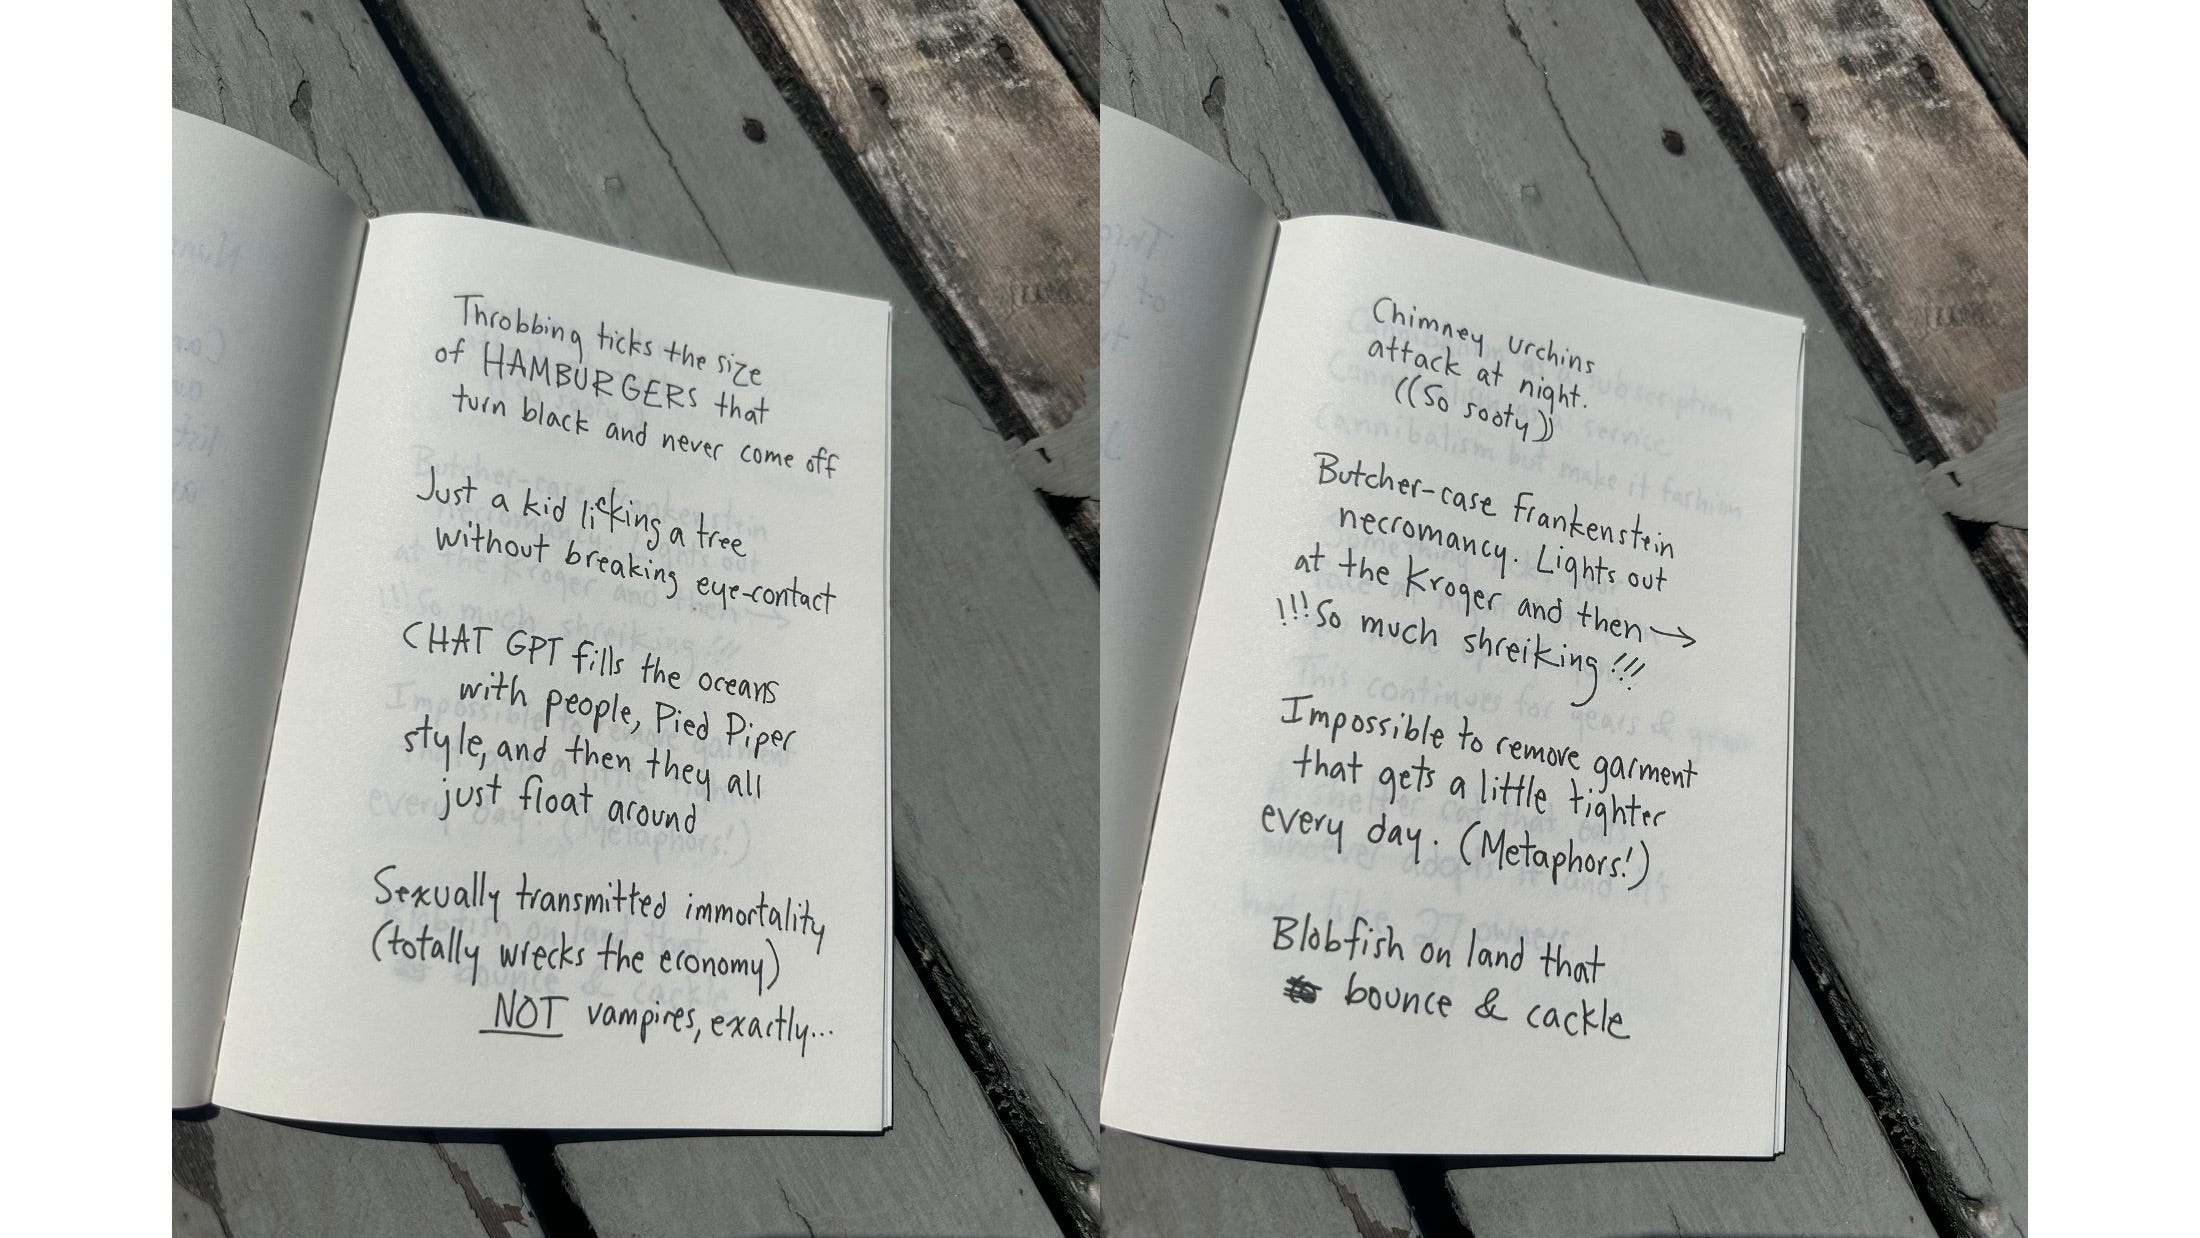 Throbbing ticks the size
of HAMBURGERS that
turn black and never come off
Just a kid licking a tree
without breaking eye-contact
CHAT GPT fills the oceans
with people, Pied Piper
style, and then they all
just float around
Sexually transmitted immortality
(totally wrecks the economy)
NOT vampires, exactly...
Chimney urchins
attack at night.
((So sooty))
Butcher-case Frankenstein
necromancy. Lights out
at the Kroger and then →
!!!So much shreiking!!!
Impossible to remove garment
that gets a little tighter
every day. (Metaphors!)
Blobfish on land that
bounce & cackle